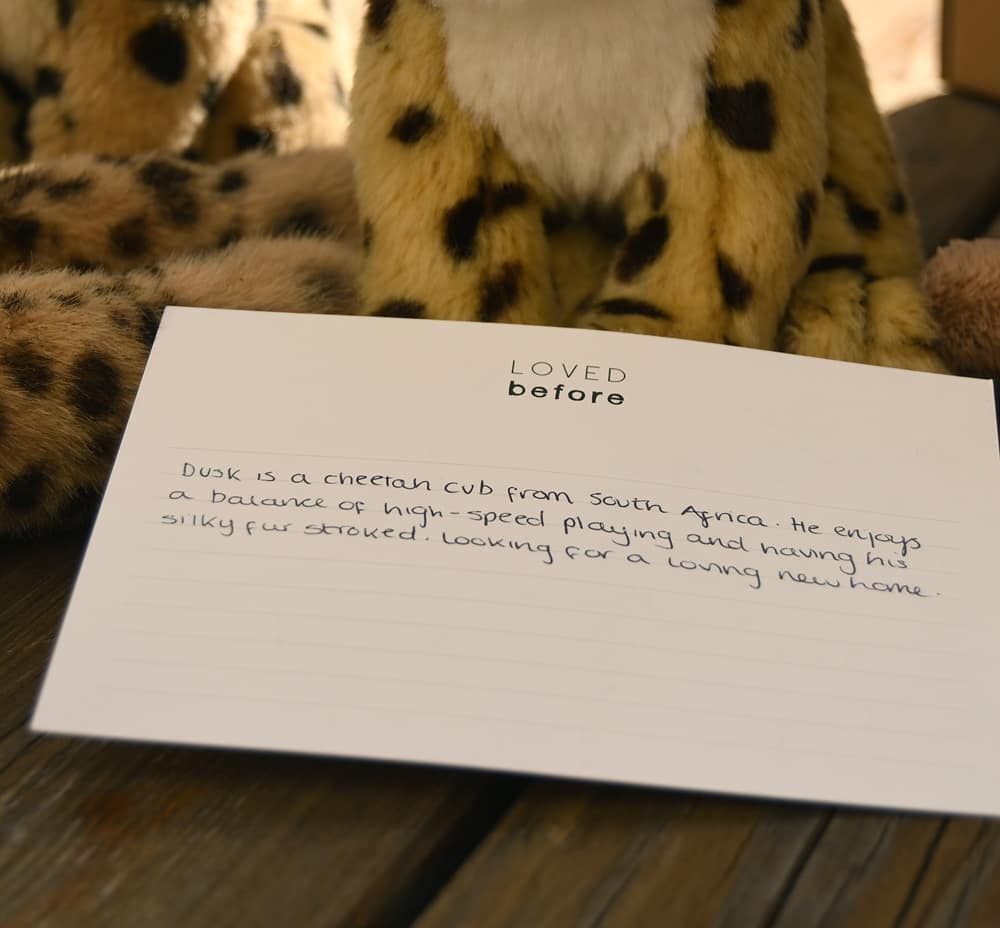 LOVED
before
Dusk is a cheetah cub from South Africa. He enjoys
a balance of high-speed playing and having his
silky fur stroked. Looking for a loving new home.